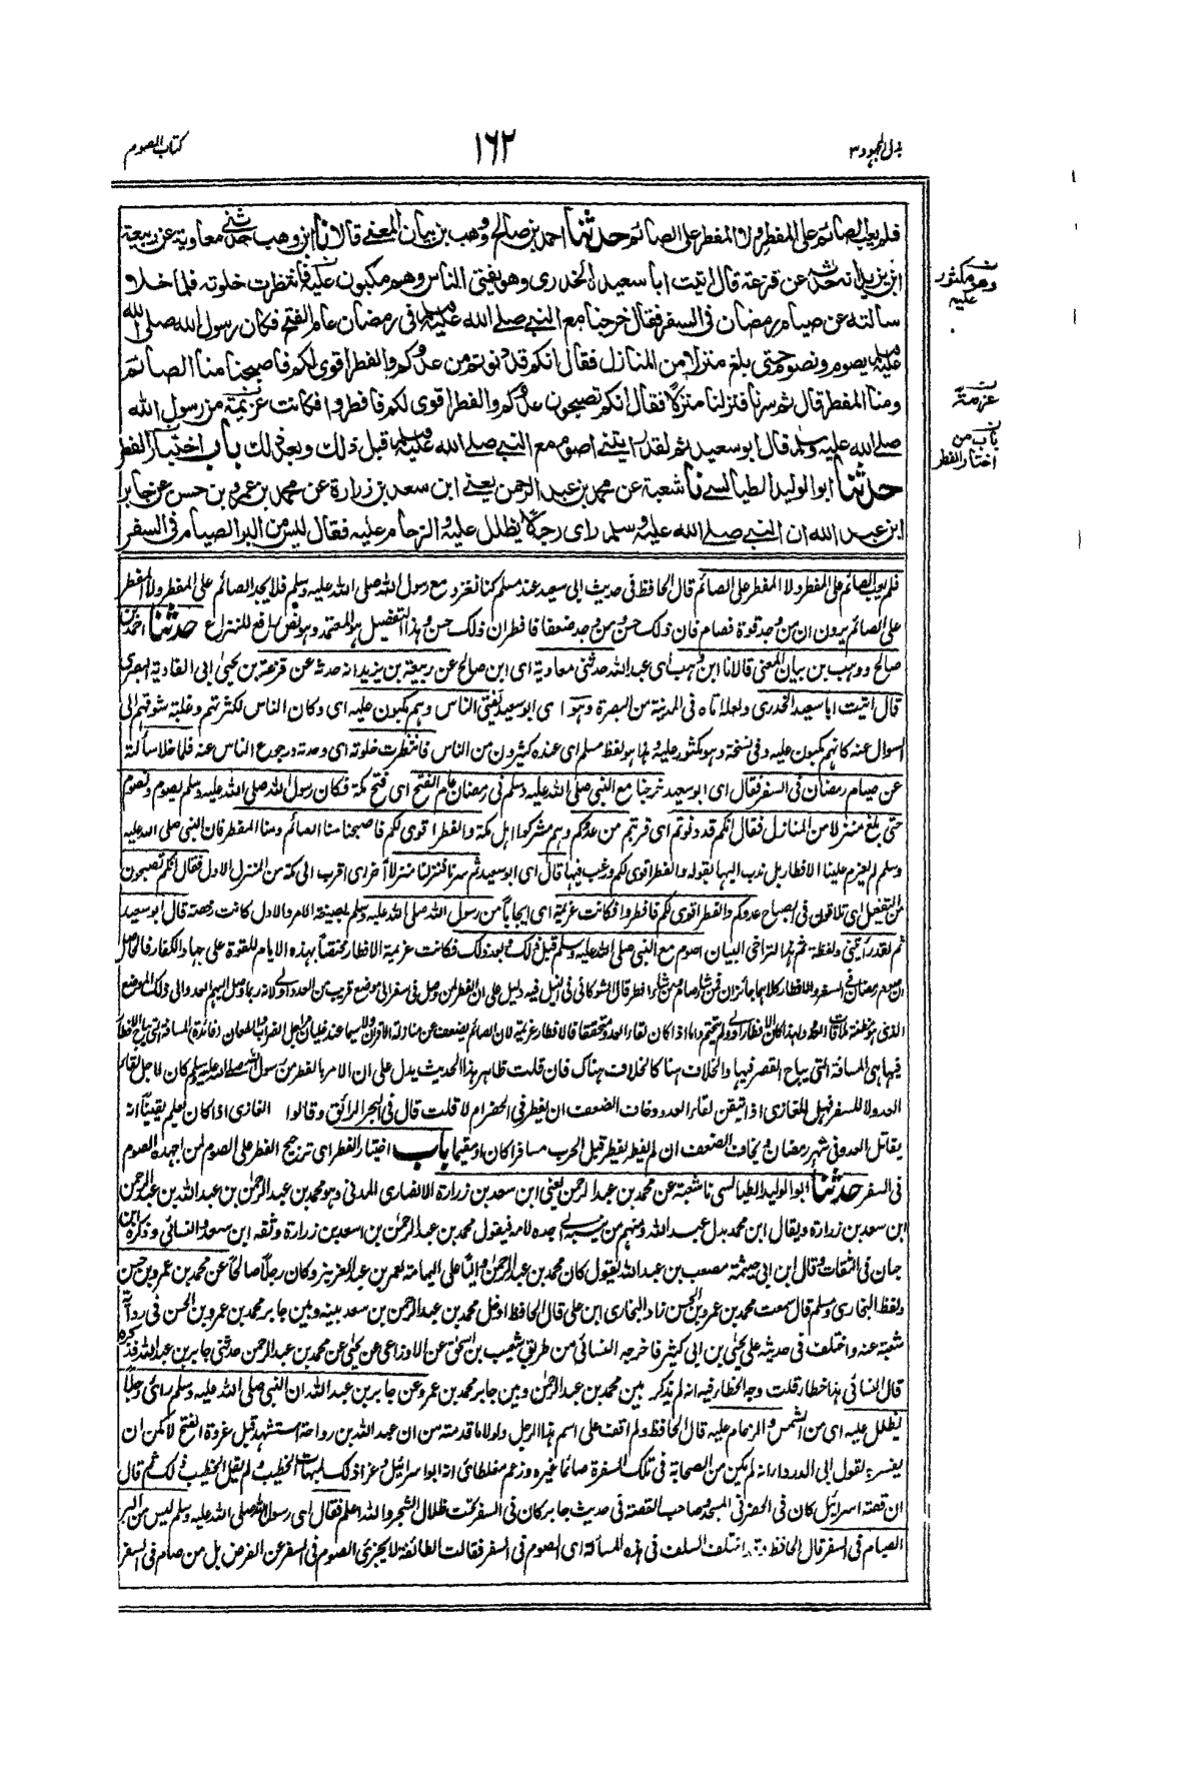 بذل المجهود ٣
١٦٢
كتاب الصوم
فلم يعب الصائم على المفطر ولا المفطر على الصائم حدثنا احمد بن صالح ووهب بن بيان المعنى قالا نا ابن وهب حدثني معاوية عن ربيعة
ابن يزيد انه حدثه عن قزعة قال اتيت ابا سعيد الخدري وهو يفتي الناس وهم مكبون عليه فانتظرت خلوته فلما خلا
سألته عن صيام رمضان في السفر فقال خرجنا مع النبي صلى الله عليه وسلم في رمضان عام الفتح فكان رسول الله صلى الله
عليه وسلم يصوم ونصوم حتى بلغ منزلا من المنازل فقال انكم قد دنوتم من عدوكم والفطر اقوى لكم فاصبحنا منا الصائم
ومنا المفطر قال ثم سرنا فنزلنا منزلاً فقال انكم تصبحون عدوكم والفطر اقوى لكم فافطروا فكانت عزيمة من رسول الله
صلى الله عليه وسلم قال ابو سعيد ثم لقد رايتني اصوم مع النبي صلى الله عليه وسلم قبل ذلك وبعد ذلك باب اختيار الفطر
حدثنا ابو الوليد الطيالسي نا شعبة عن محمد بن عبد الرحمن يعني ابن سعد بن زرارة عن محمد بن عمرو بن حسن عن جابر
ابن عبد الله ان النبي صلى الله عليه وسلم راى رجلا يظلل عليه والزحام عليه فقال ليس من البر الصيام في السفر
ن وهو مكثور
عليه
ن عزمة
ن باب من
اختار الفطر
فلم يعب الصائم على المفطر ولا المفطر على الصائم قال الحافظ في حديث ابي سعيد عند مسلم كنا نغزو مع رسول الله صلى الله عليه وسلم فلا يجد الصائم على المفطر ولا المفطر
على الصائم يرون ان من وجد قوة فصام فان ذلك حسن ومن وجد ضعفا فافطر ان ذلك حسن وهذا التفصيل هو المعتمد وهو نص رافع للنزاع حدثنا احمد بن
صالح ووهب بن بيان المعنى قالا نا ابن وهب اى عبد الله حدثني معاوية اى ابن صالح عن ربيعة بن يزيد انه حدثه عن قزعة بن يحيى ابى الغادية البصرى
قال اتيت ابا سعيد الخدرى ولعله اتاه في المدينة من البصرة وهو اى ابو سعيد يفتى الناس وهم مكبون عليه اى وكان الناس لكثرتهم وغلبة شوقهم الى
السوال عنه كانهم مكبون عليه وفي نسخة وهو مكثور عليه وهو لفظ مسلم اى عنده كثيرون من الناس فانتظرت خلوته اى وحدته ورجوع الناس عنه فلما خلا سألته
عن صيام رمضان في السفر فقال اى ابو سعيد خرجنا مع النبي صلى الله عليه وسلم في رمضان عام الفتح اى فتح مكة فكان رسول الله صلى الله عليه وسلم يصوم ونصوم
حتى بلغ منزلا من المنازل فقال انكم قد دنوتم اى قربتم من عدوكم وهم مشركوا اهل مكة والفطر اقوى لكم فاصبحنا منا الصائم ومنا المفطر فان النبي صلى الله عليه
وسلم لم يعزم علينا الافطار بل ندب اليها بقوله والفطر اقوى لكم ورغب فيها قال اى ابو سعيد ثم سرنا فنزلنا منزلاً آخر اى اقرب الى مكة من المنزل الاول فقال انكم تصبحون
من التفعيل اى تلاقون في الصباح عدوكم والفطر اقوى لكم فافطروا فكانت عزيمة اى ايجاباً من رسول الله صلى الله عليه وسلم بصيغة الامر والاول كانت رخصة قال ابو سعيد
ثم لقد رأيتنى ولفظة ثم هنا لتراخى البيان اصوم مع النبي صلى الله عليه وسلم قبل ذلك وبعد ذلك فكانت عزيمة الافطار مختصاً بهذه الايام للقوة على جهاد الكفار فالحاصل
ان صوم رمضان في السفر والافطار كلاهما جائزان فمن شاء صام ومن شاء افطر قال الشوكانى في النيل فيه دليل على ان الفطر لمن وصل في سفر الى موضع قريب من العدو اولى لانه ربما وصل اليهم العدو الى ذلك الموضع
الذى هو مظنة ملاقاة العدو ولهذا كان الافطار اولى ولم يتحتم واما اذا كان لقاء العدو متحققا فالافطار عزيمة لان الصائم يضعف عن منازلة الاقران ولا سيما عند غليان مراجل الضراب والطعان فائدة المسافة التى يباح الافطار
فيها هى المسافة التى يباح القصر فيها والخلاف هنا كالخلاف هناك فان قلت ظاهر هذا الحديث يدل على ان الامر بالفطر من رسول الله صلى الله عليه وسلم كان لاجل لقاء
العدو لا للسفر فهل للغازى اذا تيقن لقاء العدو وخاف الضعف ان يفطر في الحضر ام لا قلت قال في البحر الرائق وقالوا الغازى اذا كان يعلم يقيناً انه
يقاتل العدو في شهر رمضان ويخاف الضعف ان لم يفطر يفطر قبل الحرب مسافرا كان او مقيما باب اختيار الفطر اى ترجيح الفطر على الصوم لمن اجهده الصوم
في السفر حدثنا ابو الوليد الطيالسى نا شعبة عن محمد بن عبد الرحمن يعنى ابن سعد بن زرارة الانصارى المدنى وهو محمد بن عبد الرحمن بن عبد الله بن عبد الرحمن
ابن سعد بن زرارة ويقال ابن محمد بدل عبد الله ومنهم من ينسبه الى جده لامه فيقول محمد بن عبد الرحمن بن اسعد بن زرارة وثقه ابن سعد والنسائى وذكره ابن
حبان في الثقات وقال ابن ابى خيثمة مصعب بن عبد الله يقول كان محمد بن عبد الرحمن والياً على اليمامة لعمر بن عبد العزيز وكان رجلاً صالحاً عن محمد بن عمرو بن حسن
ولفظ البخارى ومسلم قال سمعت محمد بن عمرو بن الحسن زاد البخارى ابن على قال الحافظ ادخل محمد بن عبد الرحمن بن سعد بينه وبين جابر محمد بن عمرو بن الحسن في رواية
شعبة عنه واختلف في حديثه على يحيى بن ابى كثير فاخرجه النسائى من طريق شعيب بن اسحق عن الاوزاعى عن يحيى عن محمد بن عبد الرحمن حدثنى جابر بن عبد الله فذكره
قال النسائى هذا خطاء قلت وجه الخطاء فيه انه لم يذكر بين محمد بن عبد الرحمن وبين جابر محمد بن عمرو عن جابر بن عبد الله ان النبي صلى الله عليه وسلم رأى رجلاً
يظلل عليه اى من الشمس والزحام عليه قال الحافظ ولم اقف على اسم هذا الرجل ولولا ما قدمته من ان عبد الله بن رواحة استشهد قبل غزوة الفتح لامكن ان
يفسر به لقول ابى الدرداء انه لم يكن من الصحابة في تلك السفرة صائما غيره وزعم مغلطائى انه ابو اسرائيل وعزا ذلك لمبهمات الخطيب ولم يقل الخطيب ذلك ثم قال
ان قصة اسرائيل كان في الحضر في المسجد وصاحب القصة في حديث جابر كان في السفر تحت ظلال الشجر والله اعلم فقال اى رسول الله صلى الله عليه وسلم ليس من البر
الصيام في السفر قال الحافظ وقد اختلف السلف في هذه المسألة اى الصوم في السفر فقالت الطائفة لا يجزئ الصوم في السفر عن الفرض بل من صام في السفر